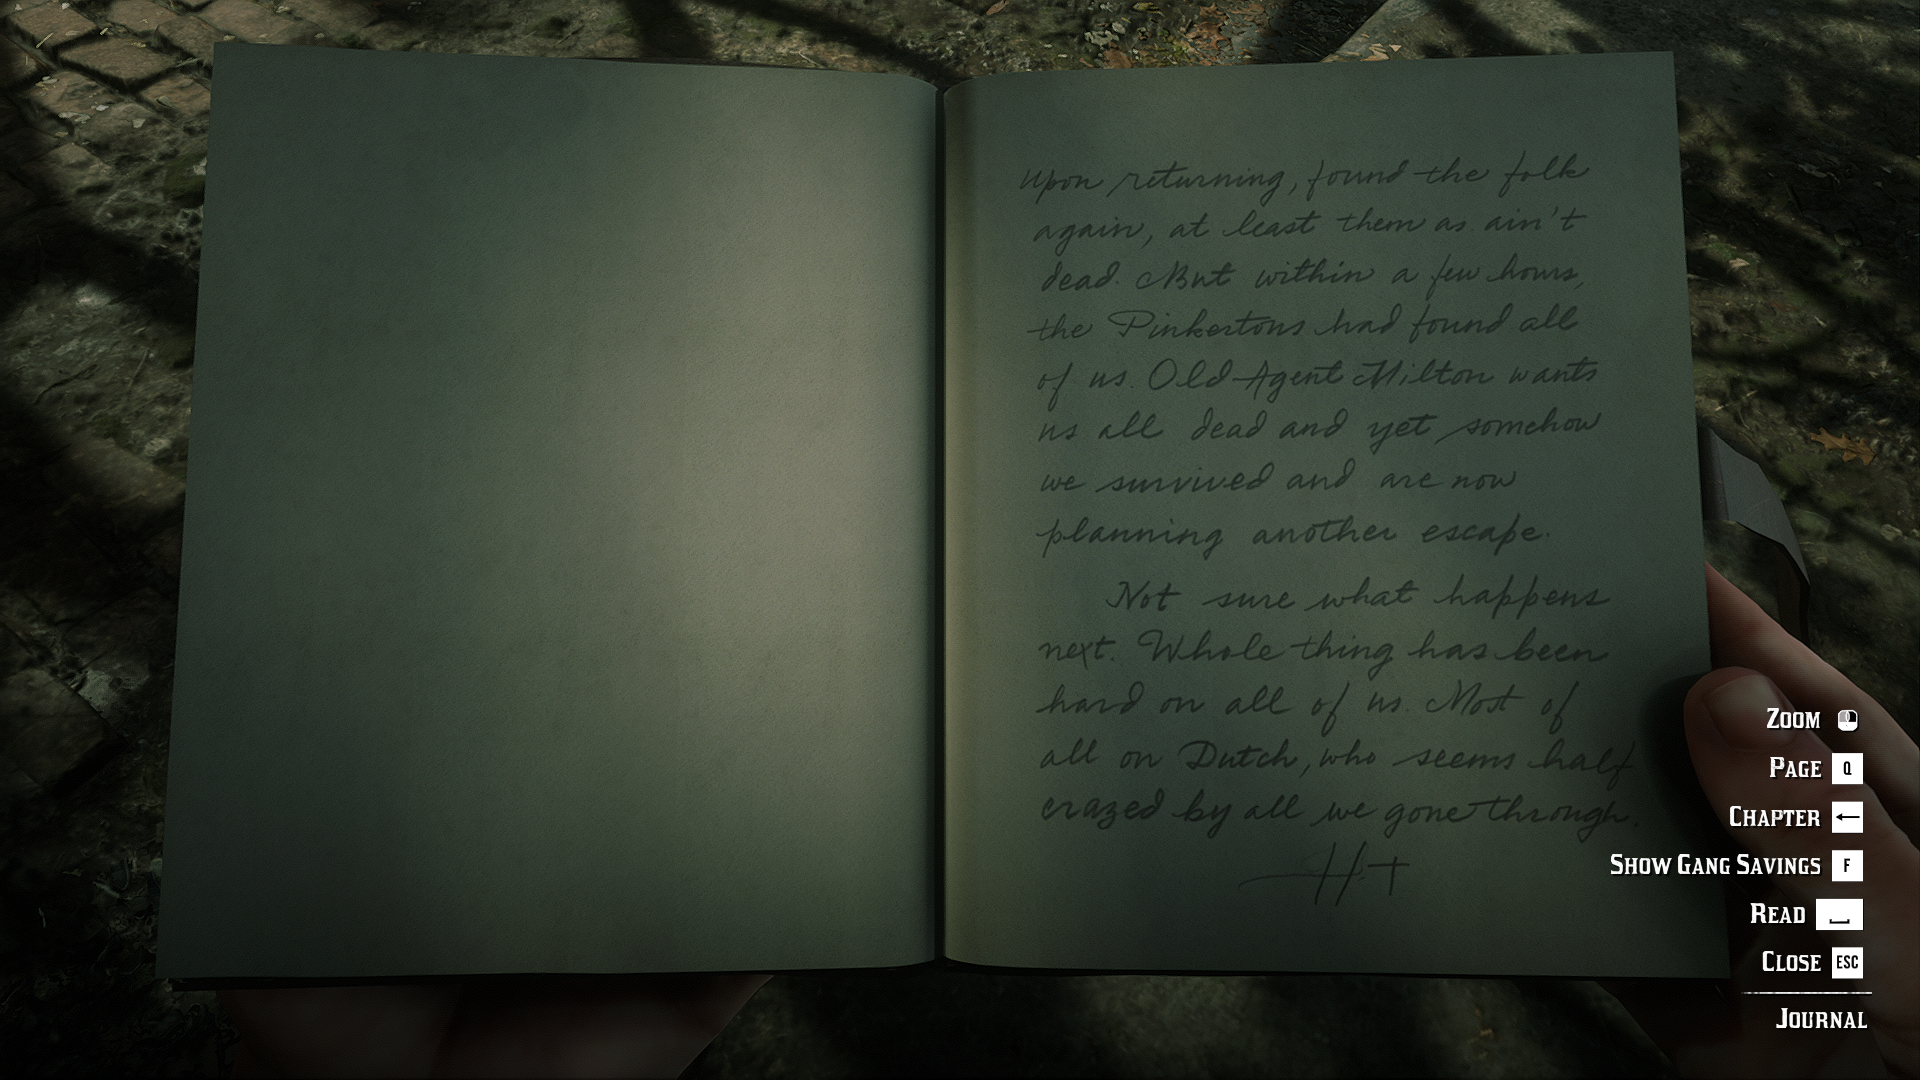 Upon returning, found the folk
again, at least them as ain't
dead. But within a few hours,
the Pinkertons had found all
of us. Old Agent Milton wants
us all dead and yet somehow
we survived and are now
planning another escape.
Not sure what happens
next. Whole thing has been
hard on all of us. Most of
all on Dutch, who seems half
crazed by all we gone through.
ZOOM
PAGE Q
CHAPTER ←
SHOW GANG SAVINGS F
READ
CLOSE ESC
JOURNAL